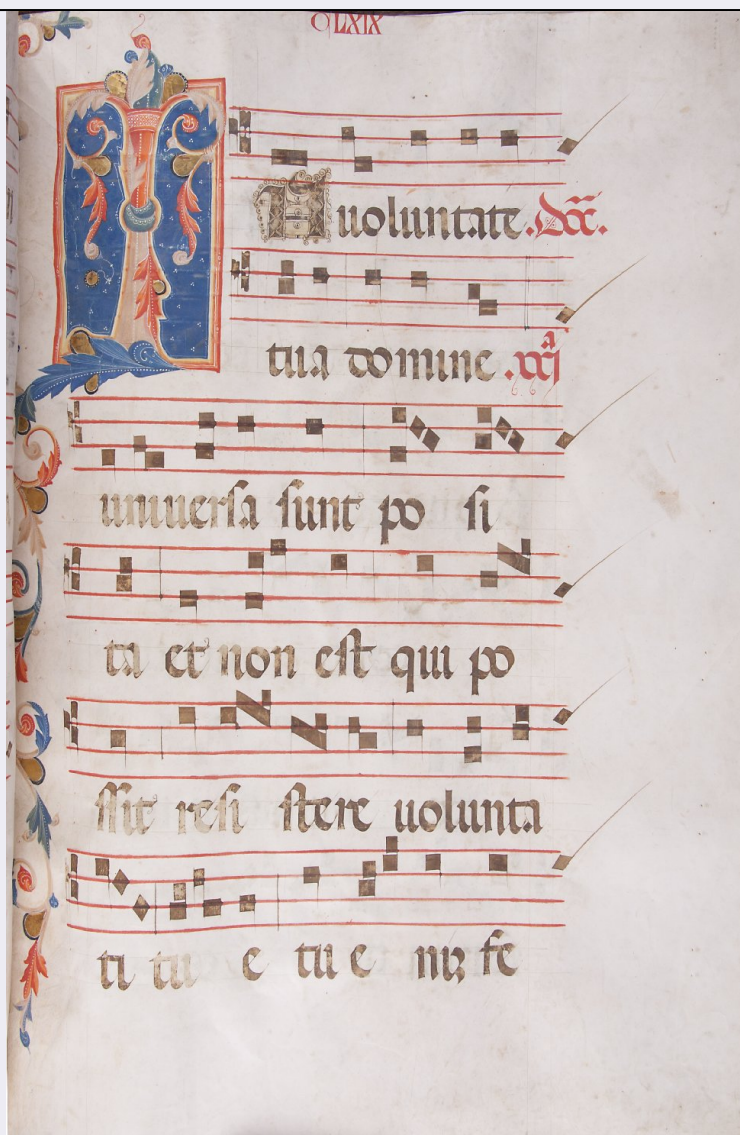 CLXIX
IN uoluntate .Dōc̄.
tua domine .xxiᵃ
uniuersa sunt po si
ta et non est qui po
ssit resi stere uolunta
ti tu e tu e niʒ fe